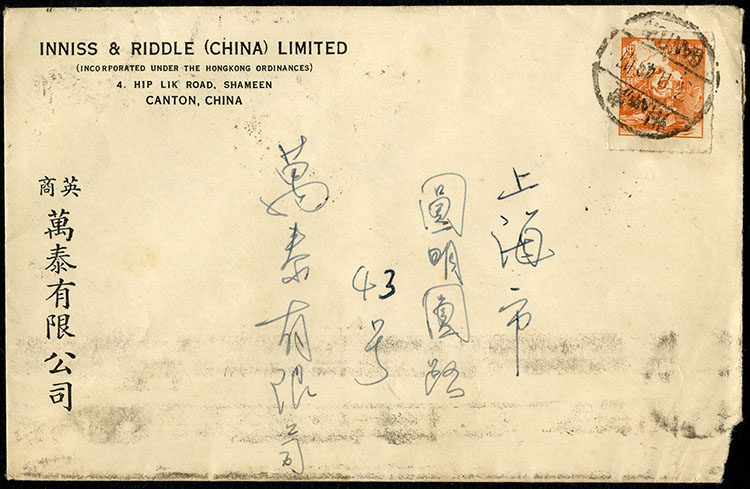 INNISS & RIDDLE (CHINA) LIMITED
(INCORPORATED UNDER THE HONGKONG ORDINANCES)
4. HIP LIK ROAD, SHAMEEN
CANTON, CHINA
英商
萬泰有限公司
上海市
圓明園路
43号
萬泰有限公司